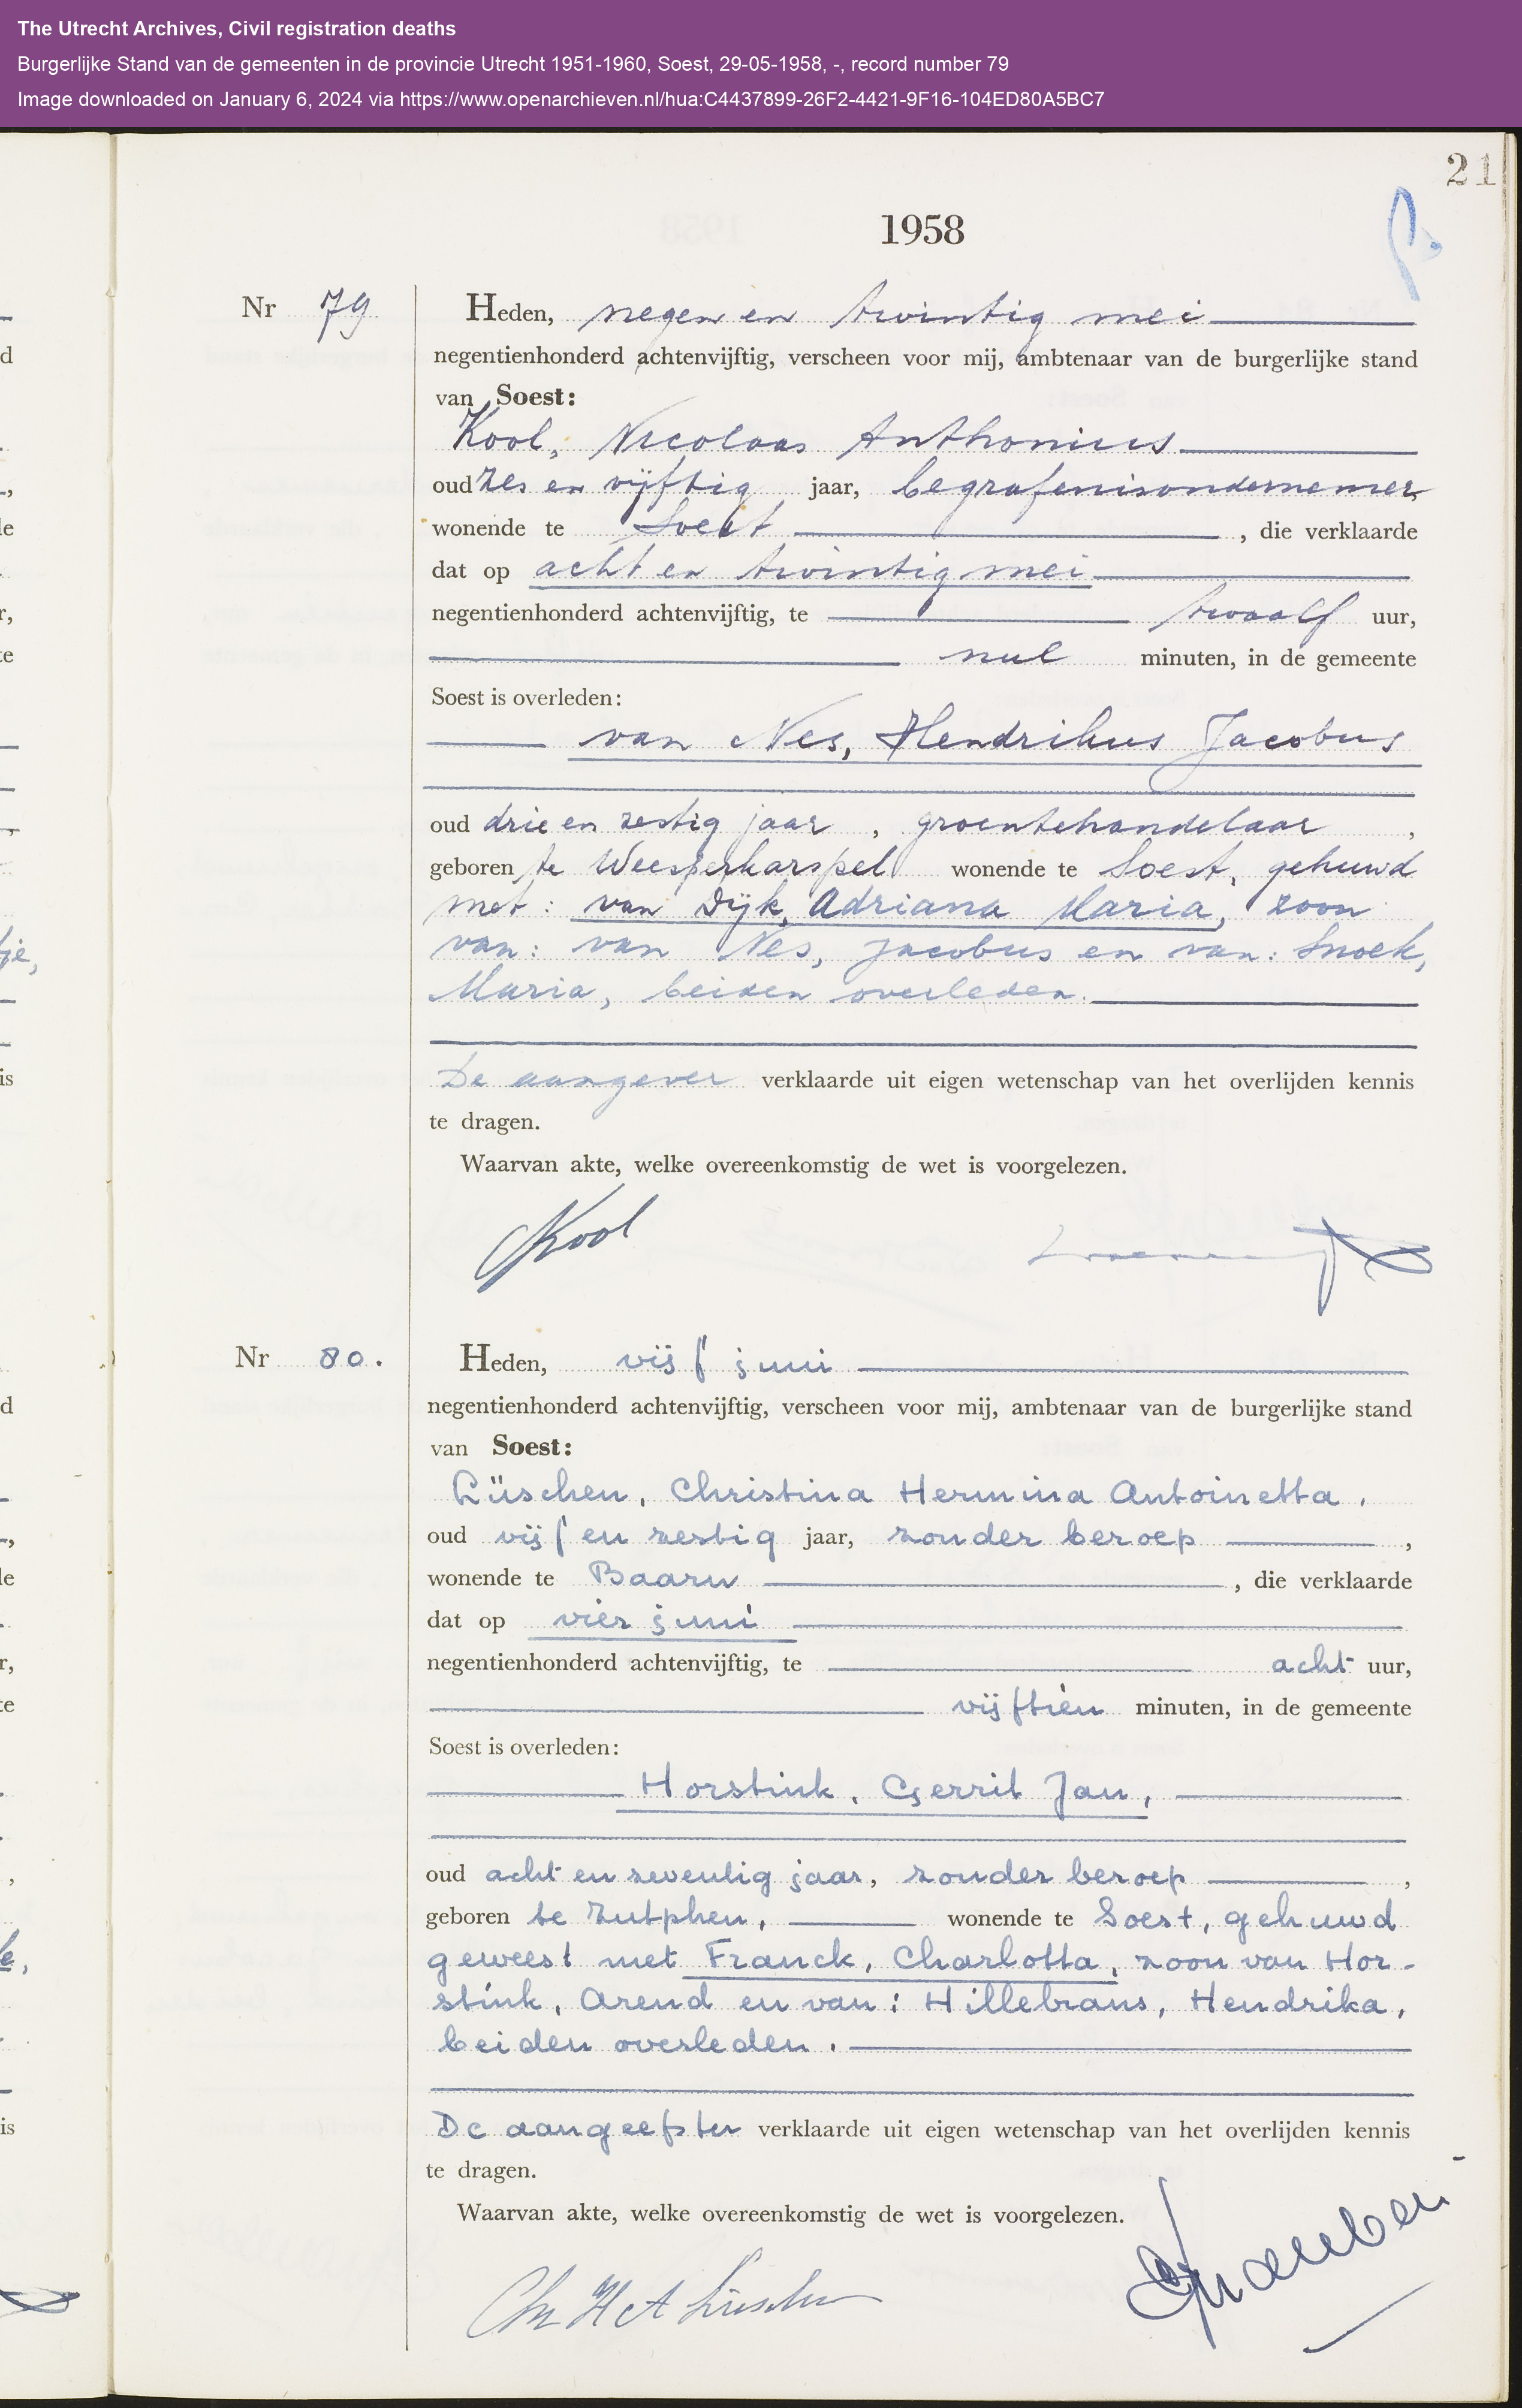 The Utrecht Archives, Civil registration deaths
Burgerlijke Stand van de gemeenten in de provincie Utrecht 1951-1960, Soest, 29-05-1958, -, record number 79
Image downloaded on January 6, 2024 via https://www.openarchieven.nl/hua:C4437899-26F2-4421-9F16-104ED80A5BC7
21
1958
Nr 79 Heden, negen en twintig mei
negentienhonderd achtenvijftig, verscheen voor mij, ambtenaar van de burgerlijke stand
van Soest:
Kool, Nicolaas Anthonius
oud zes en vijftig jaar, begrafenisondernemer
wonende te Soest , die verklaarde
dat op acht en twintig mei
negentienhonderd achtenvijftig, te twaalf uur,
nul minuten, in de gemeente
Soest is overleden:
van Nes, Hendrikus Jacobus
oud drie en zestig jaar , groentehandelaar ,
geboren te Weesperkarspel wonende te Soest, gehuwd
met: van Dijk, Adriana Maria, zoon
van: van Nes, Jacobus en van: Snoek,
Maria, beiden overleden.
De aangever verklaarde uit eigen wetenschap van het overlijden kennis
te dragen.
Waarvan akte, welke overeenkomstig de wet is voorgelezen.
Kool
Nr 80. Heden, vijf juni
negentienhonderd achtenvijftig, verscheen voor mij, ambtenaar van de burgerlijke stand
van Soest:
Lüschen, Christina Hermina Antoinetta,
oud vijf en zestig jaar, zonder beroep ,
wonende te Baarn , die verklaarde
dat op vier juni
negentienhonderd achtenvijftig, te acht uur,
vijftien minuten, in de gemeente
Soest is overleden:
Horstink, Gerrit Jan,
oud acht en zeventig jaar, zonder beroep ,
geboren te Zutphen, wonende te Soest, gehuwd
geweest met Franck, Charlotta, zoon van Hor-
stink, Arend en van: Hillebrans, Hendrika,
beiden overleden.
De aangeefster verklaarde uit eigen wetenschap van het overlijden kennis
te dragen.
Waarvan akte, welke overeenkomstig de wet is voorgelezen.
Ch H A Lüschen